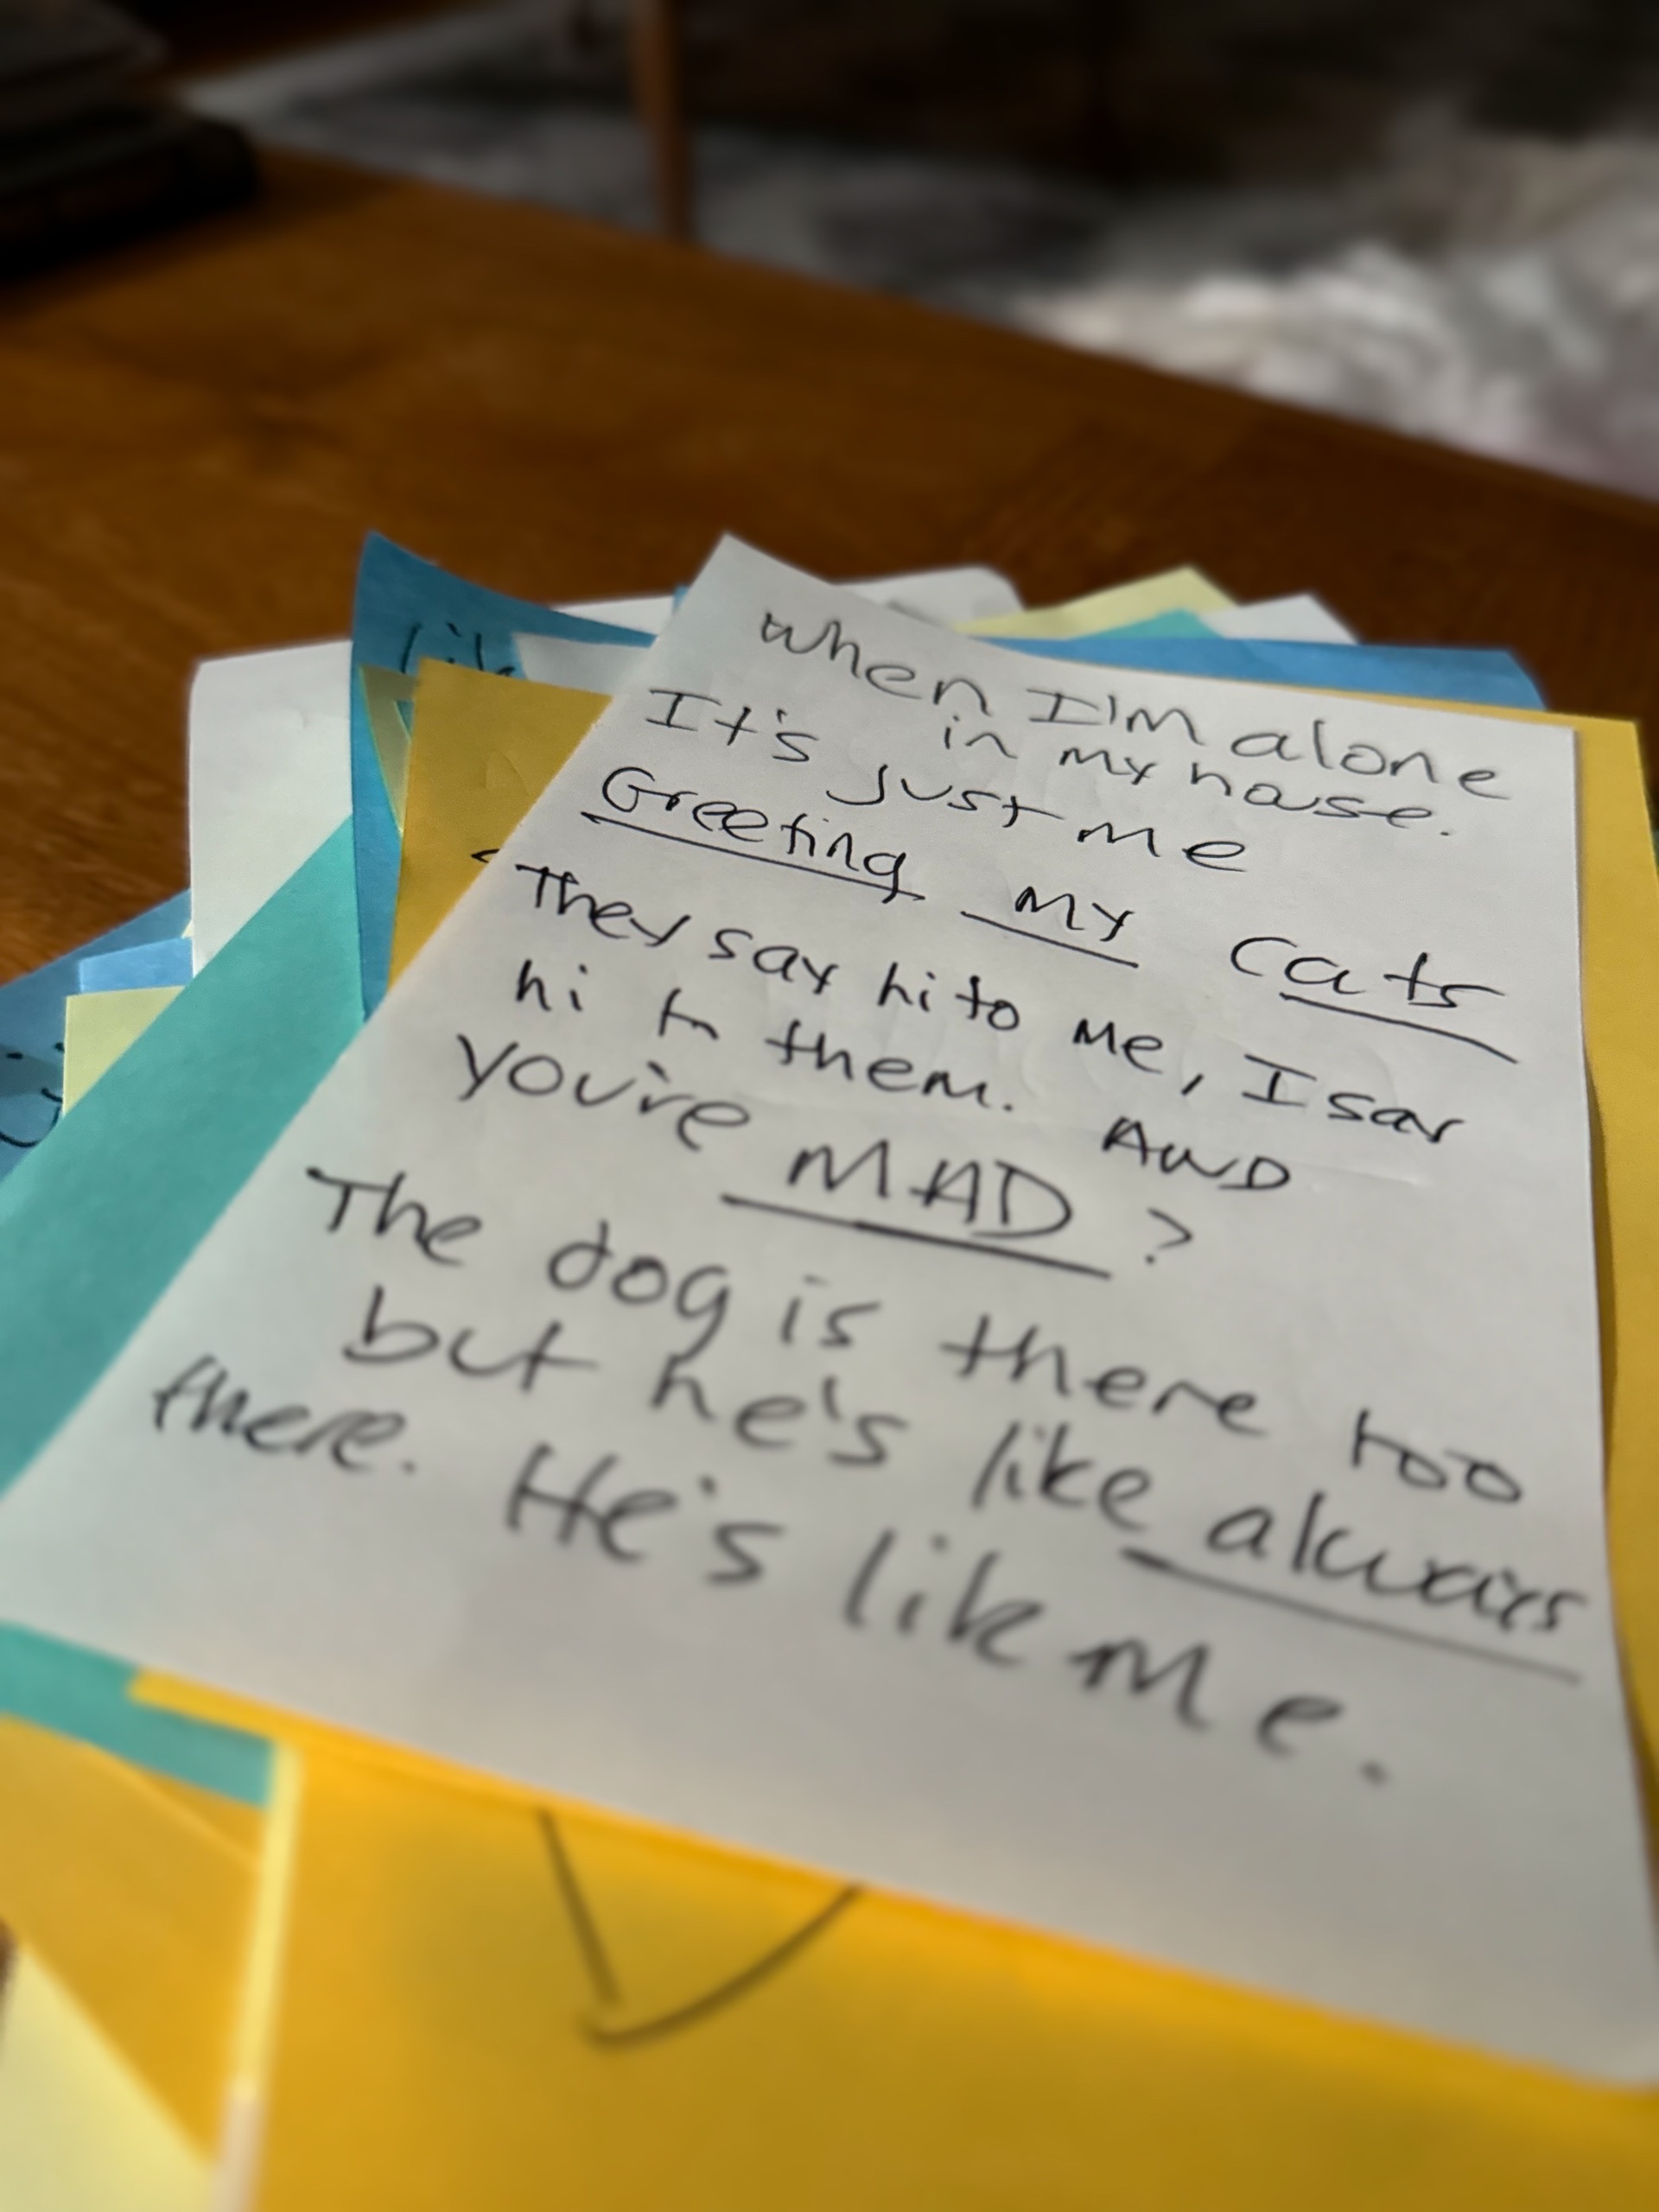 when I'm alone
in my house.
It's just me
Greeting my cats
They say hi to me, I say
hi to them. AND
you're MAD?
The dog is there too
but he's like always
there. He's like me.